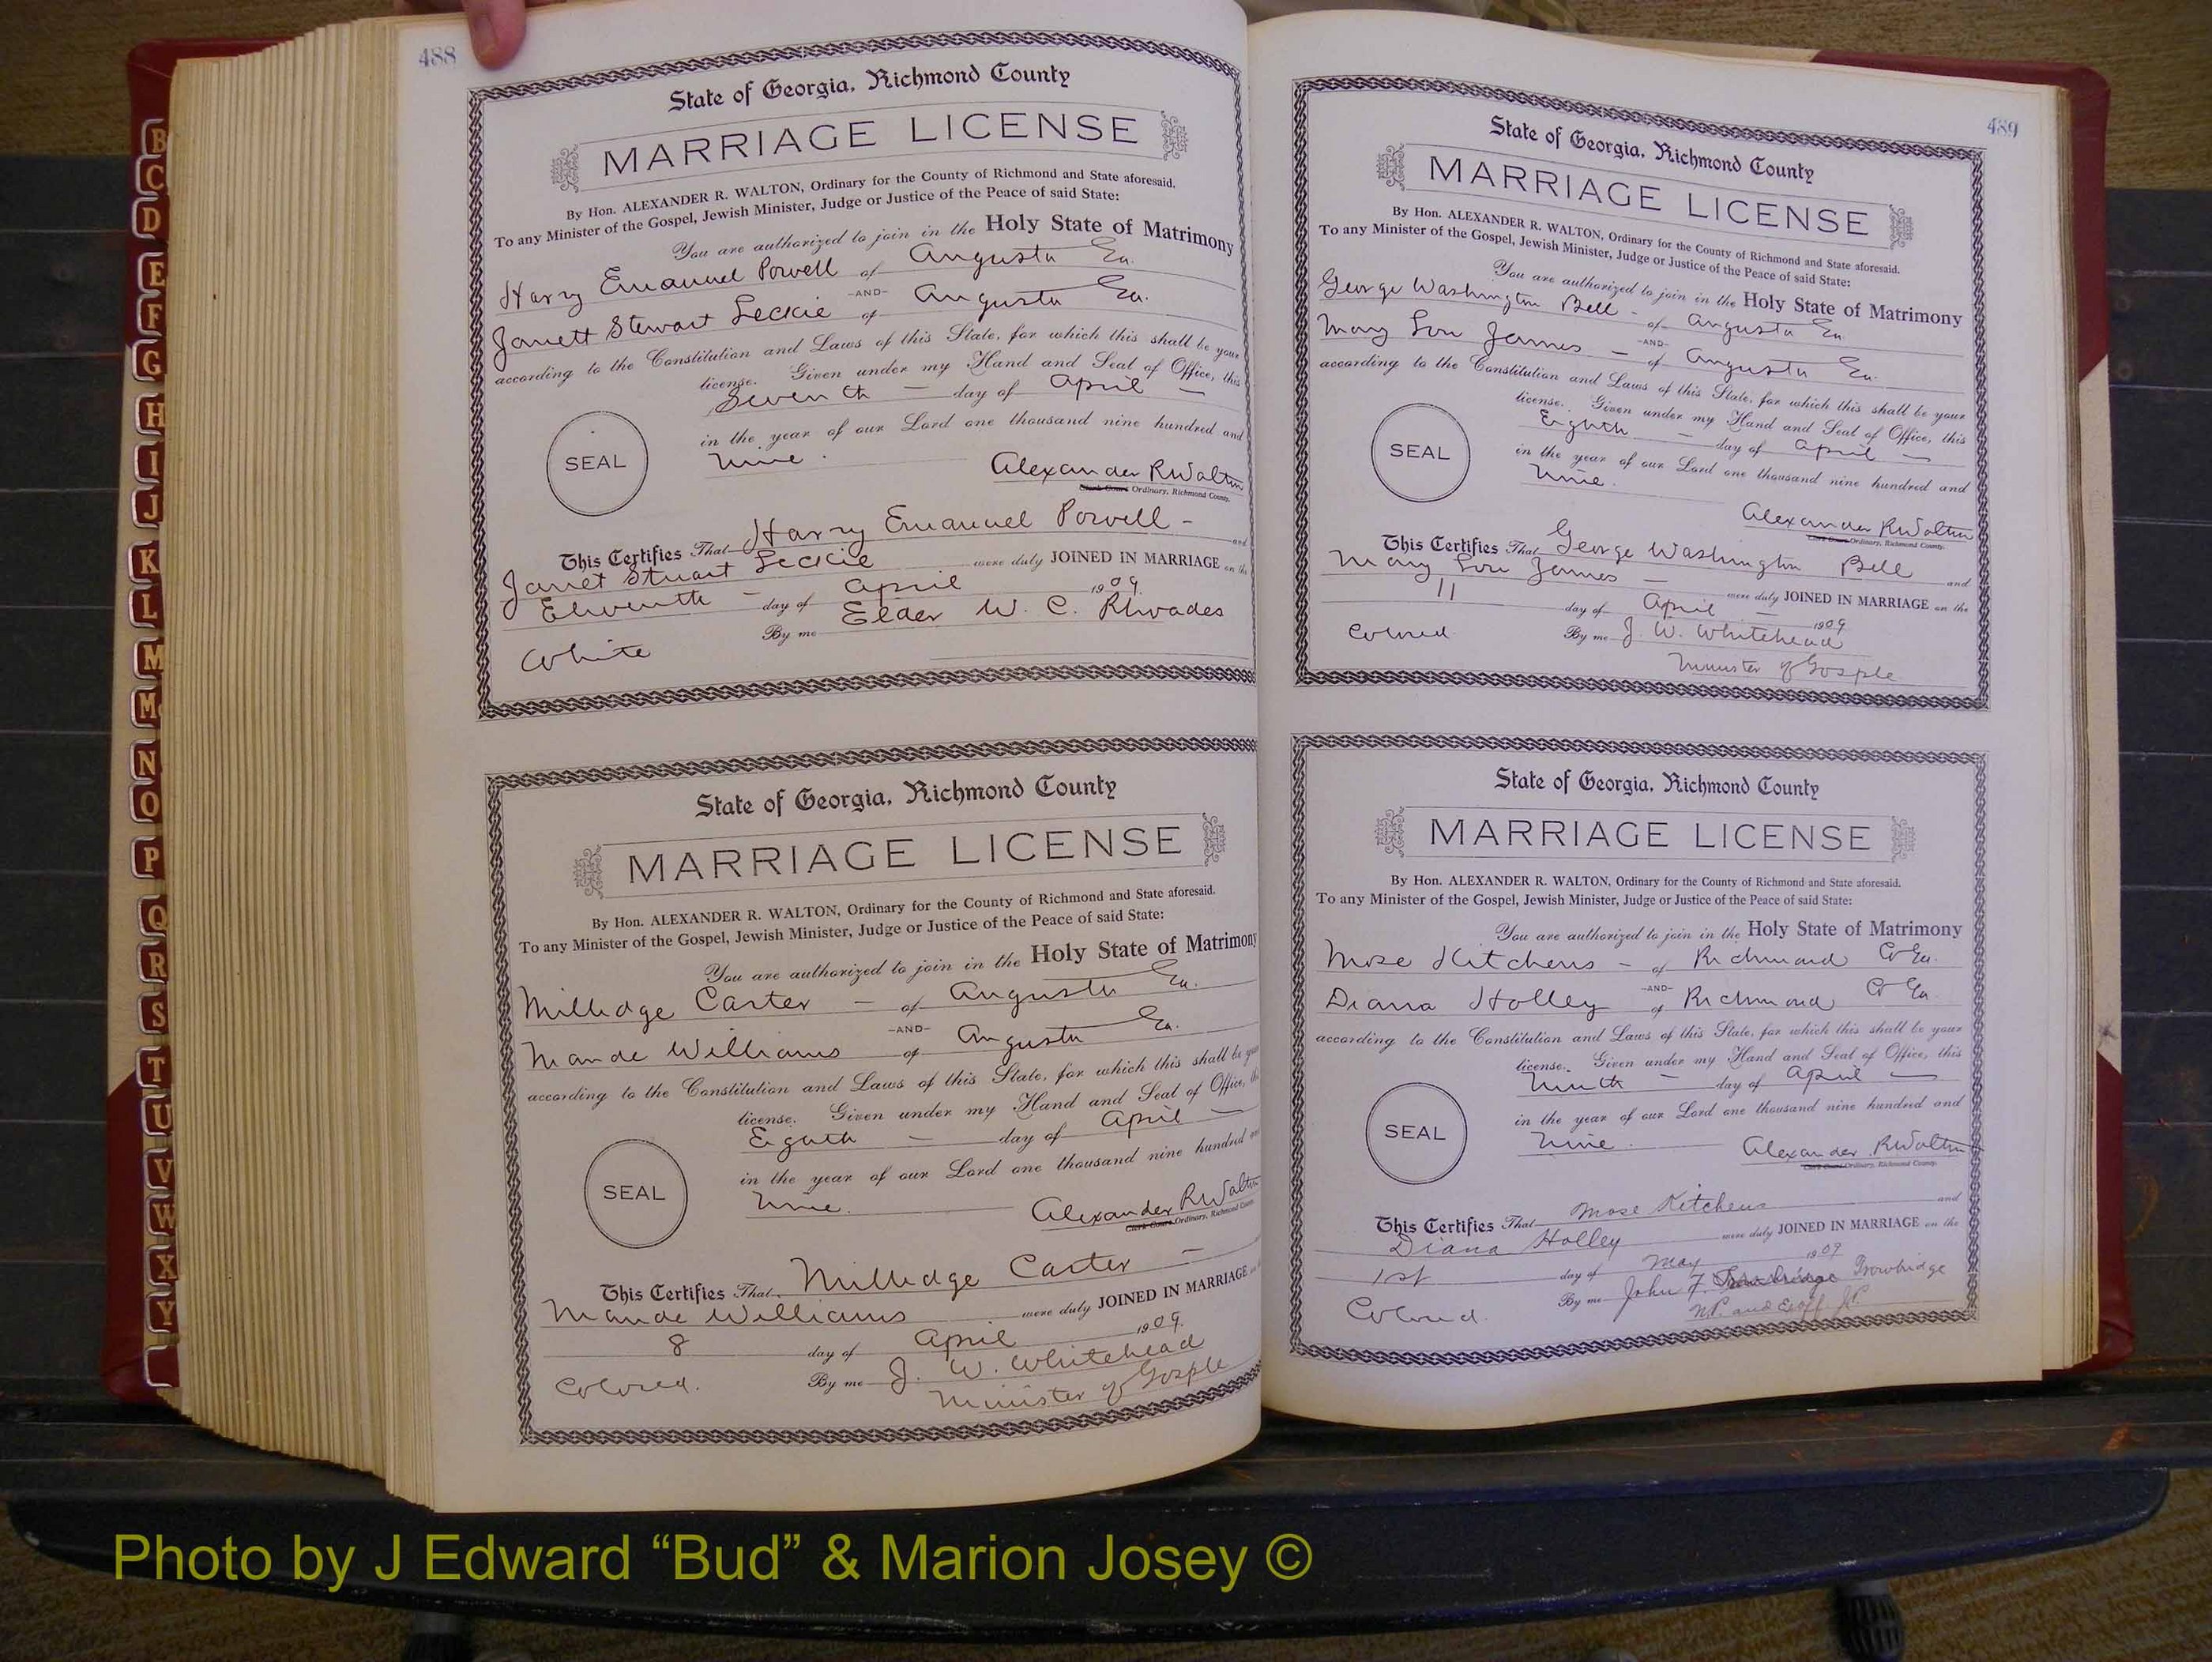 488
State of Georgia, Richmond County
MARRIAGE LICENSE
By Hon. ALEXANDER R. WALTON, Ordinary for the County of Richmond and State aforesaid.
To any Minister of the Gospel, Jewish Minister, Judge or Justice of the Peace of said State:
You are authorized to join in the Holy State of Matrimony
Harry Emanuel Powell of Augusta Ga.
-AND-
Janett Stewart Leckie of Augusta Ga.
according to the Constitution and Laws of this State, for which this shall be your
license. Given under my Hand and Seal of Office, this
Seventh — day of April —
in the year of our Lord one thousand nine hundred and
nine.
SEAL
Alexander R Walton
Clerk Court Ordinary, Richmond County.
This Certifies That Harry Emanuel Powell - and
Janet Stuart Leckie were duly JOINED IN MARRIAGE on the
Eleventh - day of April 1909.
By me Elder W. C. Rhoades
White
State of Georgia, Richmond County
MARRIAGE LICENSE
By Hon. ALEXANDER R. WALTON, Ordinary for the County of Richmond and State aforesaid.
To any Minister of the Gospel, Jewish Minister, Judge or Justice of the Peace of said State:
You are authorized to join in the Holy State of Matrimony
Milledge Carter — of Augusta Ga.
-AND-
Maude Williams of Augusta Ga.
according to the Constitution and Laws of this State, for which this shall be your
license. Given under my Hand and Seal of Office, this
Eighth — day of April —
in the year of our Lord one thousand nine hundred and
nine.
SEAL
Alexander R Walton
Clerk Court Ordinary, Richmond County
This Certifies That Milledge Carter —
Maude Williams were duly JOINED IN MARRIAGE
8 day of April 1909.
Colored. By me J. W. Whitehead
Minister of Gosple
489
State of Georgia, Richmond County
MARRIAGE LICENSE
By Hon. ALEXANDER R. WALTON, Ordinary for the County of Richmond and State aforesaid.
To any Minister of the Gospel, Jewish Minister, Judge or Justice of the Peace of said State:
You are authorized to join in the Holy State of Matrimony
George Washington Bell - of Augusta Ga.
-AND-
Mary Lou James — of Augusta Ga.
according to the Constitution and Laws of this State, for which this shall be your
license. Given under my Hand and Seal of Office, this
Eighth — day of April —
in the year of our Lord one thousand nine hundred and
nine.
SEAL
Alexander R Walton
Clerk Court Ordinary, Richmond County.
This Certifies That George Washington Bell and
Mary Lou James — were duly JOINED IN MARRIAGE on the
11 day of April — 1909
Colored By me J. W. Whitehead
Minister of Gosple
State of Georgia, Richmond County
MARRIAGE LICENSE
By Hon. ALEXANDER R. WALTON, Ordinary for the County of Richmond and State aforesaid.
To any Minister of the Gospel, Jewish Minister, Judge or Justice of the Peace of said State:
You are authorized to join in the Holy State of Matrimony
Mose Kitchens - of Richmond Co Ga.
-AND-
Diana Holley of Richmond Co Ga
according to the Constitution and Laws of this State, for which this shall be your
license. Given under my Hand and Seal of Office, this
Ninth — day of April —
in the year of our Lord one thousand nine hundred and
nine.
SEAL
Alexander R Walton
Clerk Court Ordinary, Richmond County.
This Certifies That Mose Kitchens and
Diana Holley were duly JOINED IN MARRIAGE on the
1st day of May 1909
Colored. By me John F. Trowbridge
N.P. and Exoff. J.P.
B
C
D
E
F
G
H
I
J
K
L
M
Mc
N
O
P
Q
R
S
T
U
V
W
X
Y
Photo by J Edward “Bud” & Marion Josey ©